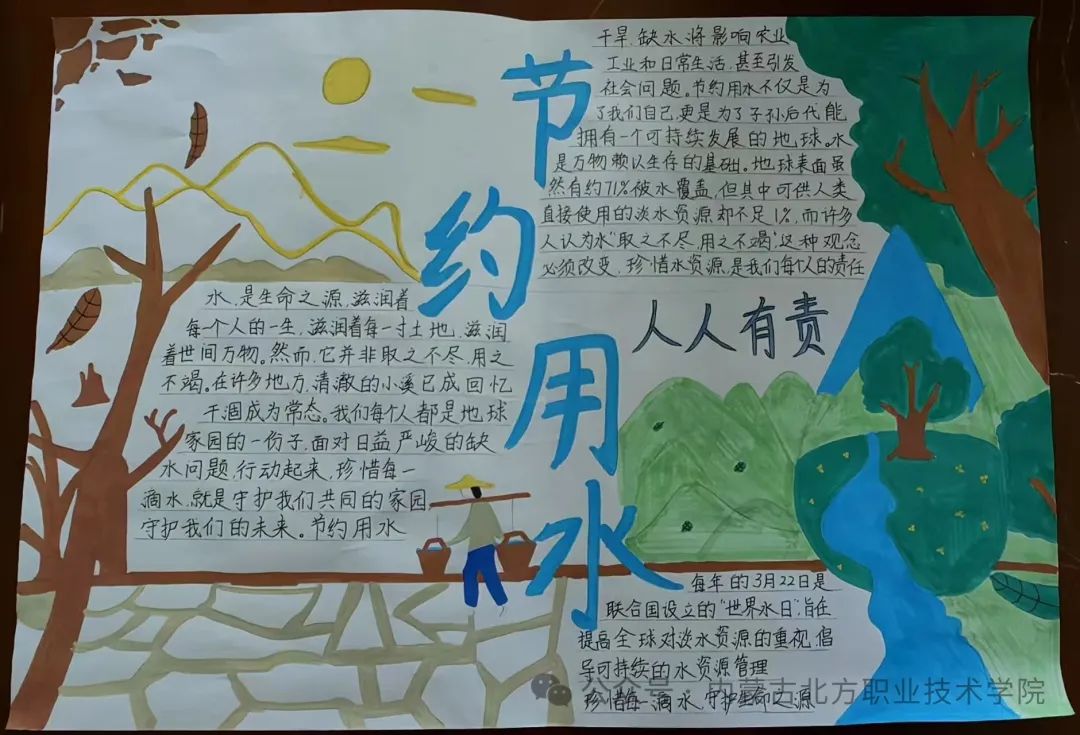 节约用水
人人有责
干旱、缺水,将影响农业
工业和日常生活,甚至引发
社会问题。节约用水不仅是为
了我们自己,更是为了子孙后代能
拥有一个可持续发展的地球。水
是万物赖以生存的基础。地球表面虽
然有约71%被水覆盖,但其中可供人类
直接使用的淡水资源却不足1%,而许多
人认为水“取之不尽,用之不竭”这种观念
必须改变,珍惜水资源,是我们每个人的责任
水,是生命之源,滋润着
每一个人的一生,滋润着每一寸土地,滋润
着世间万物。然而,它并非取之不尽,用之
不竭。在许多地方,清澈的小溪已成回忆
干涸成为常态。我们每个人都是地球
家园的一份子,面对日益严峻的缺
水问题,行动起来,珍惜每一
滴水,就是守护我们共同的家园,
守护我们的未来。节约用水
每年的3月22日是
联合国设立的“世界水日”,旨在
提高全球对淡水资源的重视,倡
导可持续的水资源管理
珍惜每一滴水,守护生命之源
公众号·内蒙古北方职业技术学院